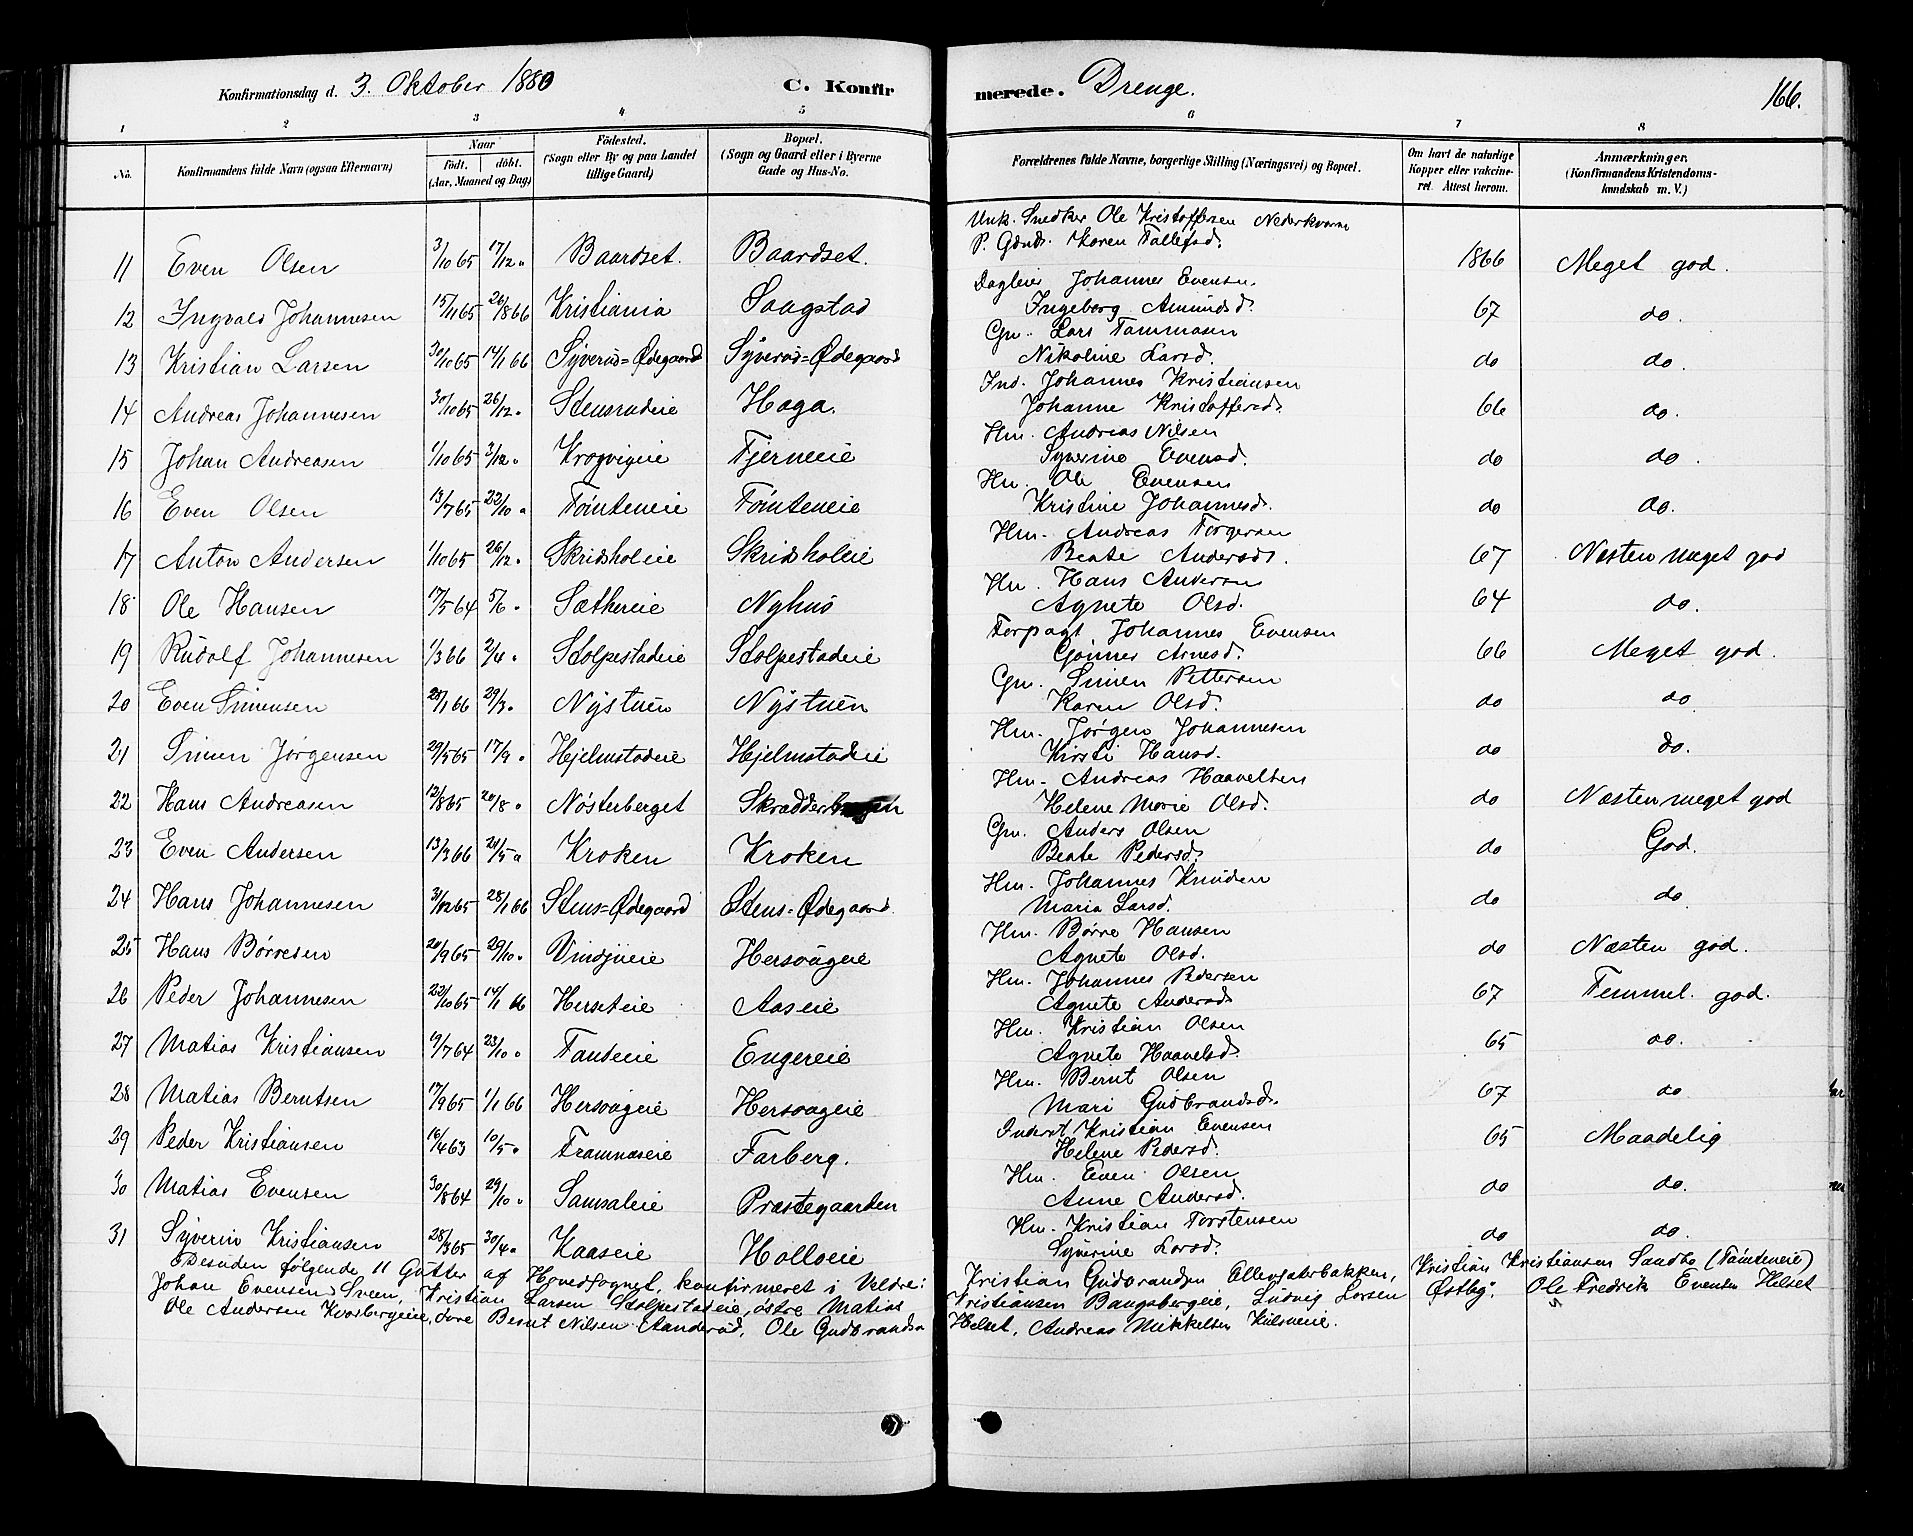 Konfirmationsdag d. 3. Oktober 1880 C. Konfirmerede. Drenge. 166.
1 2 3 4 5 6 7 8
No. Konfirmandens fulde Navn (ogsaa Efternavn) Naar født. døbt. (Aar, Maaned og Dag) Fødested. (Sogn eller By og paa Landet tillige Gaard) Bopæl. (Sogn og Gaard eller i Byerne Gade og Hus-No. Forældrenes fulde Navne, borgerlige Stilling (Næringsvei) og Bopæl. Om havt de naturlige Kopper eller vaccineret. Attest herom. Anmærkninger. (Konfirmandens Kristendomskundskab m. V.)
Unk. Snedker Ole Kristoffersen Nederkværn
11 Even Olsen 3/10 65 17/12 " Baardset. Baardset. P. Gdmds. Karen Tollefsd. 1866 Meget god.
Dagleier Johannes Evensen
12 Ingvald Johannesen 15/11 65 26/8 66 Kristiania Saugstad Ingeborg Amundsd. 67 do.
Gm. Lars Tommasen
13 Kristian Larsen 30/10 65 14/1 66 Syverud=Ødegaard Syverud=Ødegaard Nikoline Larsd. do do.
Ind. Johannes Kristiansen
14 Andreas Johannesen 30/10 65 26/12 " Stensrudeie Haga. Johanne Kristoffersd. 66 do.
Hm. Andreas Nilsen
15 Johan Andreasen 1/10 65 3/12 " Krogvigeie Tjerneie Syverine Evensd. do do.
Hm. Ole Evensen
16 Even Olsen 13/7 65 22/10 " Tømteneie Tømteneie Kristine Johannesd. do do.
Hm. Andreas Torgersen
17 Anton Andersen 1/10 65 26/12 " Skridsholeie Skridsholeie Beate Andersd. 67 Næsten meget god
Hm. Hans Andersen
18 Ole Hansen 17/5 64 5/6 " Sæthereie Nyhus Agnete Olsd. 64 do.
Forpagt. Johannes Evensen
19 Rudolf Johannesen 1/3 66 2/4 " Stolpestadeie Stolpestadeie Gønner Arnesd. 66 Meget god.
Gm. Simen Pettersen
20 Even Simensen 28/1 66 29/3 " Nystuen Nystuen Karen Olsd. do do
Hm. Jørgen Johannesen
21 Simen Jørgensen 29/5 65 17/9 " Hjelmstadeie Hjelmstadeie Kirsti Hansd. do do.
Hm. Andreas Haavelsen
22 Hans Andreasen 12/8 65 20/8 " Nøsterberget Helene Marie Olsd. do Næsten meget god
Gm. Anders Olsen
23 Even Andersen 13/3 66 21/5 " Kroken Kroken Beate Pedersd. do God.
Hm. Johannes Knudsen
24 Hans Johannesen 31/12 65 28/1 66 Stens=Ødegaard Stens=Ødegaard. Maria Larsd. do do.
Hm. Børre Hansen
25 Hans Børresen 20/9 65 29/10 " Vindjueie Hersougeie Agnete Olsd. do Næsten god.
Hm. Johannes Pedersen
26 Peder Johannesen 22/10 65 14/1 66 Herseteie Aaseie Agnete Andersd. 67 Temmel. god.
Hm. Kristian Olsen
27 Matias Kristiansen 19/7 64 23/10 " Fandeie Engereie Agnete Haavelsd. 65 do.
Hm. Bernt Olsen
28 Matias Berntsen 17/9 65 1/1 66 Hersougeie Hersougeie Mari Gudbrandsd. 67 do
Inderst Kristian Evensen
29 Peder Kristiansen 16/4 63 10/5 " Framnæseie Farberg. Helene Pedersd. 65 Maadelig
Hm. Even Olsen
30 Matias Evensen 30/8 64 29/10 " Samsaleie Præstegaarden Anne Andersd. do do.
Hm. Kristian Torstensen
31 Syverin Kristiansen 28/3 65 30/4 " Kaaseie Holloeie Syverine Larsd. do do.
Desuden følgende 11 Gutter af Hovedsognet, konfirmeret i Veldre: Kristian Gudbrandsen Ellevsæterbakken, Kristian Kristiansen Sandbo (Tømteneie)
Johan Evensen Sveen, Kristian Larsen Stolpestadeie, østre Matias Kristiansen Bangsbergeie, Ludvig Larsen Østby. Ole Fredrik Evensen Helset
Ole Andersen Kvarbergeie, Bernt Nilsen Aanderud, Ole Gudbrandsen Helset, Andreas Mikkelsen